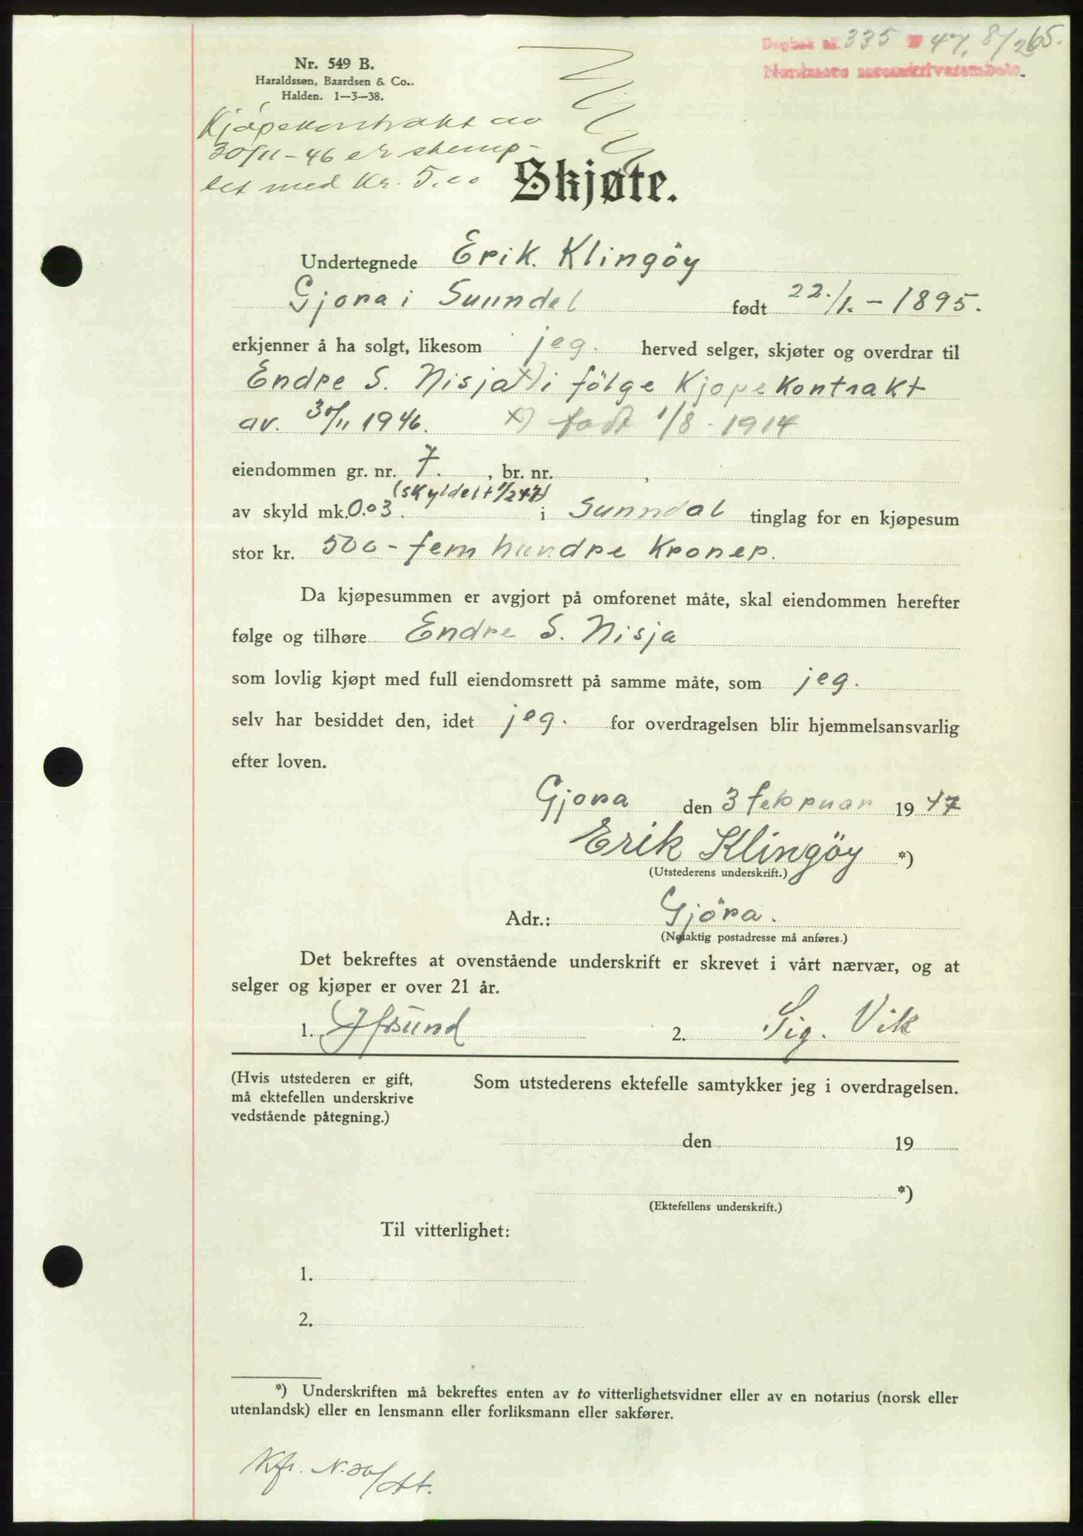 Dagbok nr. 335 19 47, 8/2 65.
Nordmøre sorenskriverembede.
Nr. 549 B.
Haraldssøn, Baardsen & Co..
Halden. 1—3—38.
Kjøpekontrakt av
30/11-46 er stemp-
let med Kr. 5.00
Skjøte.
Undertegnede Erik. Klingöy
Gjora i Sunndal født 22./1. - 1895.
erkjenner å ha solgt, likesom jeg. herved selger, skjøter og overdrar til
Endre S. Nisja x) i fölge Kjopekontrakt
av. 30/11 1946. x) fodt 1/8 - 1914
eiendommen gr. nr. 7. , br. nr. ,
(skyldelt 1/2 47)
av skyld mk. 0.03. i Sunndal tinglag for en kjøpesum
stor kr. 500 - fem hundre Kroner.
Da kjøpesummen er avgjort på omforenet måte, skal eiendommen herefter
følge og tilhøre Endre S. Nisja
som lovlig kjøpt med full eiendomsrett på samme måte, som jeg.
selv har besiddet den, idet jeg. for overdragelsen blir hjemmelsansvarlig
efter loven.
Gjora den 3 februar 19 47
Erik Klingöy *)
(Utstederens underskrift.)
Adr.: Gjöra.
(Nøiaktig postadresse må anføres.)
Det bekreftes at ovenstående underskrift er skrevet i vårt nærvær, og at
selger og kjøper er over 21 år.
1. 2. Sig. Vik
(Hvis utstederen er gift,
må ektefellen underskrive
vedstående påtegning.)
Som utstederens ektefelle samtykker jeg i overdragelsen.
den 19
*)
(Ektefellens underskrift.)
Til vitterlighet:
1.
2.
*) Underskriften må bekreftes enten av to vitterlighetsvidner eller av en notarius (norsk eller
utenlandsk) eller en lensmann eller forliksmann eller sakfører.
Kfr.